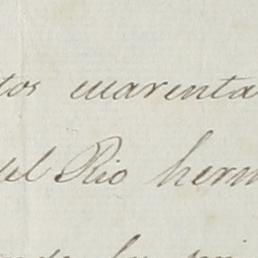 tos cuarenta
del Rio herm